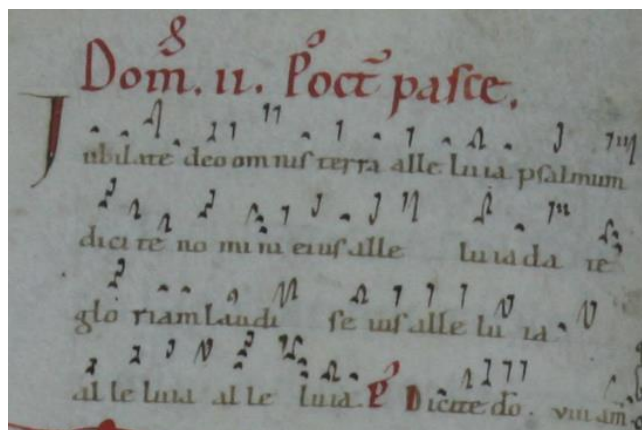 Dom̄. II. P̄ oct̄ pasce.
Jubilate deo omnis terra alle luia psalmum
dicite no mini eius alle luia da te
glo riam laudi se ius alle lu ia.
al le luia al le luia. P Dicite dō.